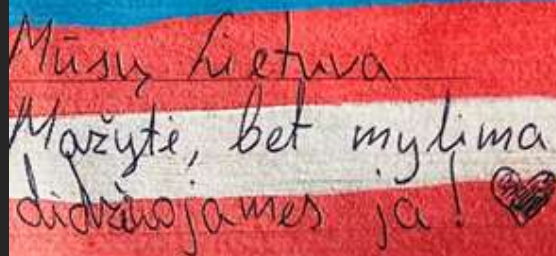 Mūsų Lietuva
Mažytė, bet mylima
didžiuojamės ja!